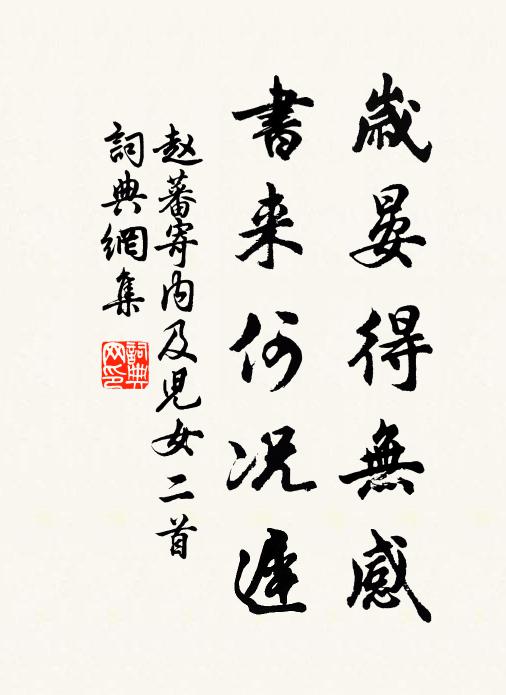 歲晏得無感
書来何况遲
赵蕃寄内及児女二首
詞典網集
詞典网印